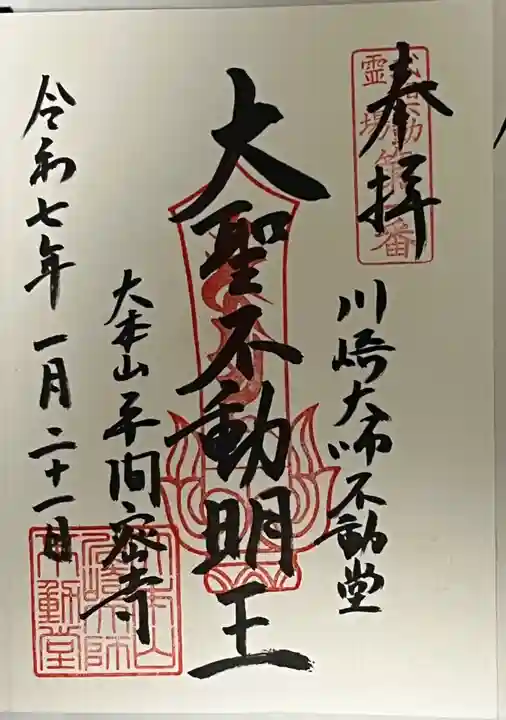 奉拝
川崎大師不動堂
大聖不動明王
大本山平間密寺
令和七年一月二十一日
霊場
大本山
川崎大師
不動堂